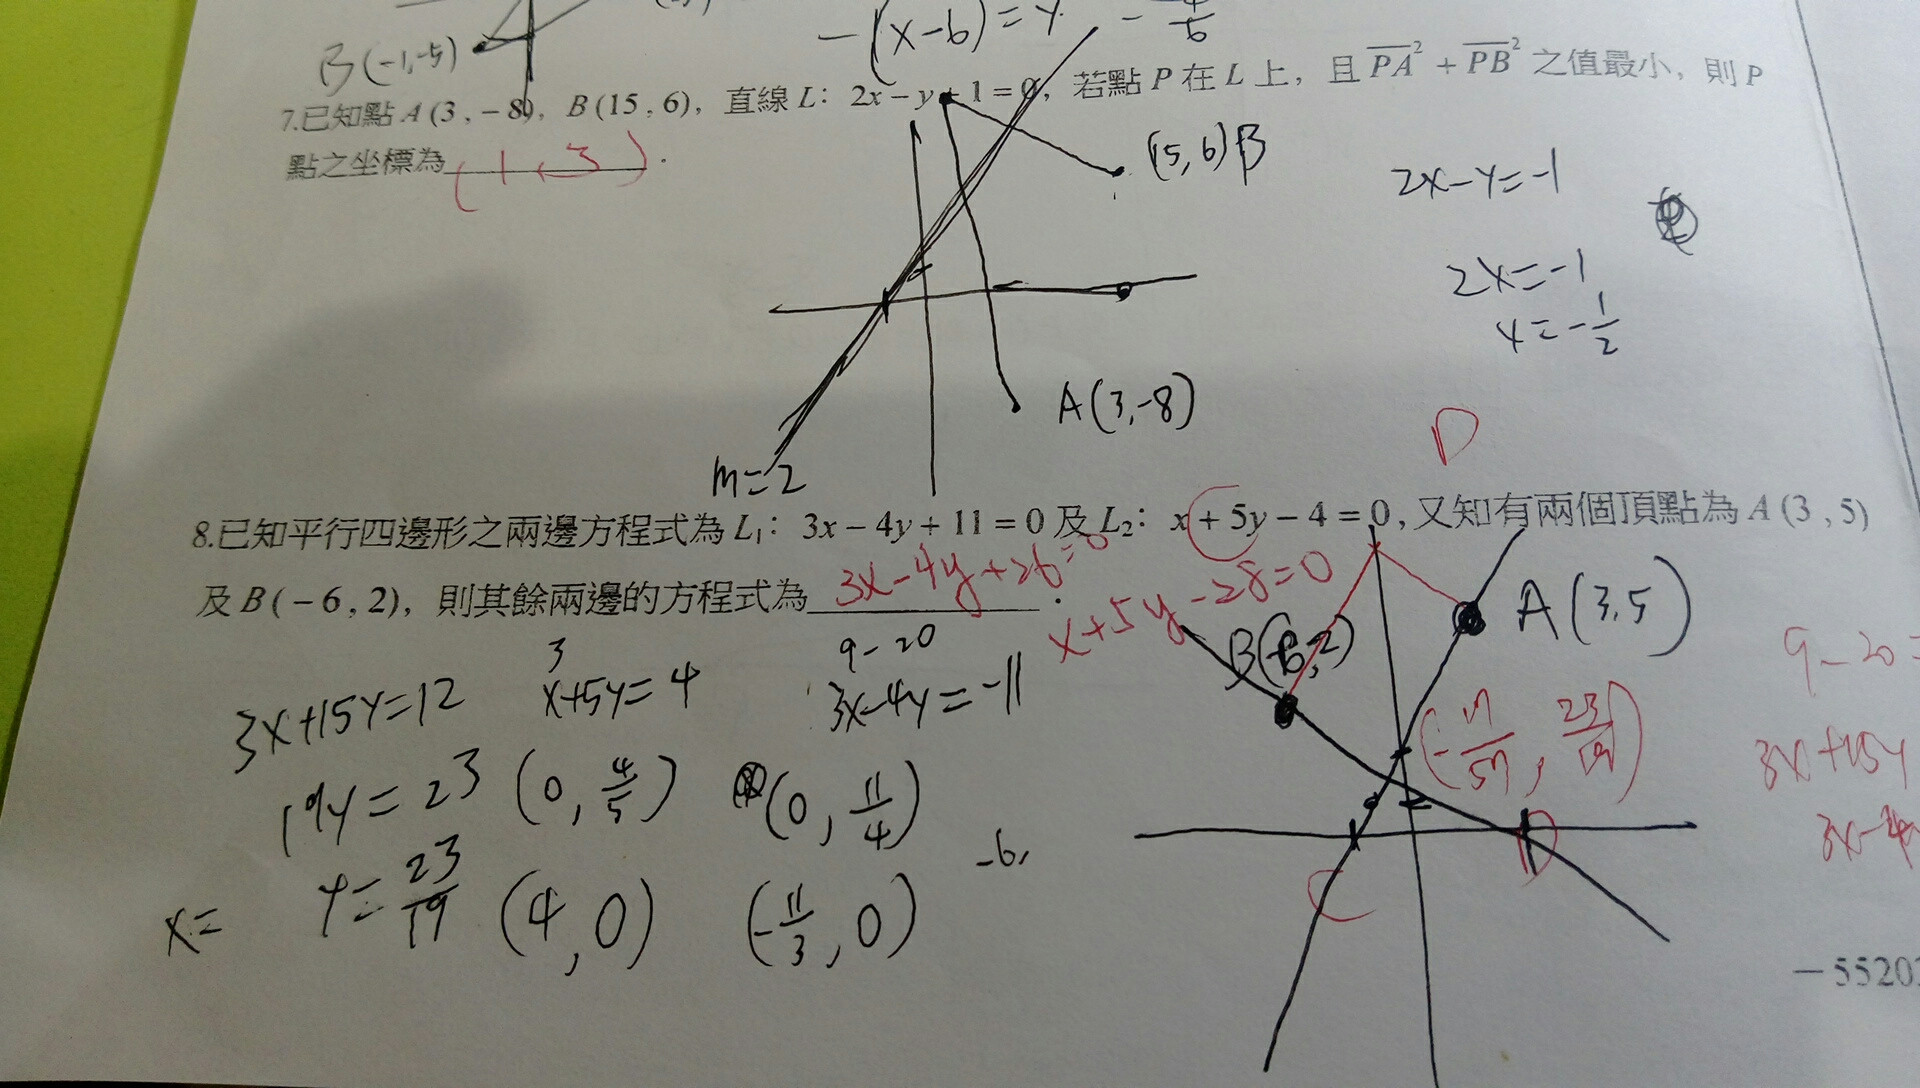 B(-1,-5)
-(x-6)=y
7.已知點 A (3 , − 8), B (15 , 6), 直線 L: 2x − y + 1 = 0, 若點 P 在 L 上, 且 PA² + PB² 之值最小, 則 P
點之坐標為 (1,3) .
(15,6)B
2x-y=-1
2x=-1
x=-1/2
A(3,-8)
m=2
D
8.已知平行四邊形之兩邊方程式為 L₁: 3x − 4y + 11 = 0 及 L₂: x + 5y − 4 = 0 , 又知有兩個頂點為 A (3 , 5)
及 B ( − 6 , 2), 則其餘兩邊的方程式為 3x-4y+26=0 .
x+5y-28=0
A(3,5)
B(-6,2)
9-20
3
3x+15y=12
x+5y=4
3x-4y=-11
9-20=
19y=23
(0, 4/5)
(0, 11/4)
(-17/57, 23/19)
3x+15y
3x-4y
-6,
x=
y=23/19
(4,0)
(-11/3, 0)
C
D
−5520